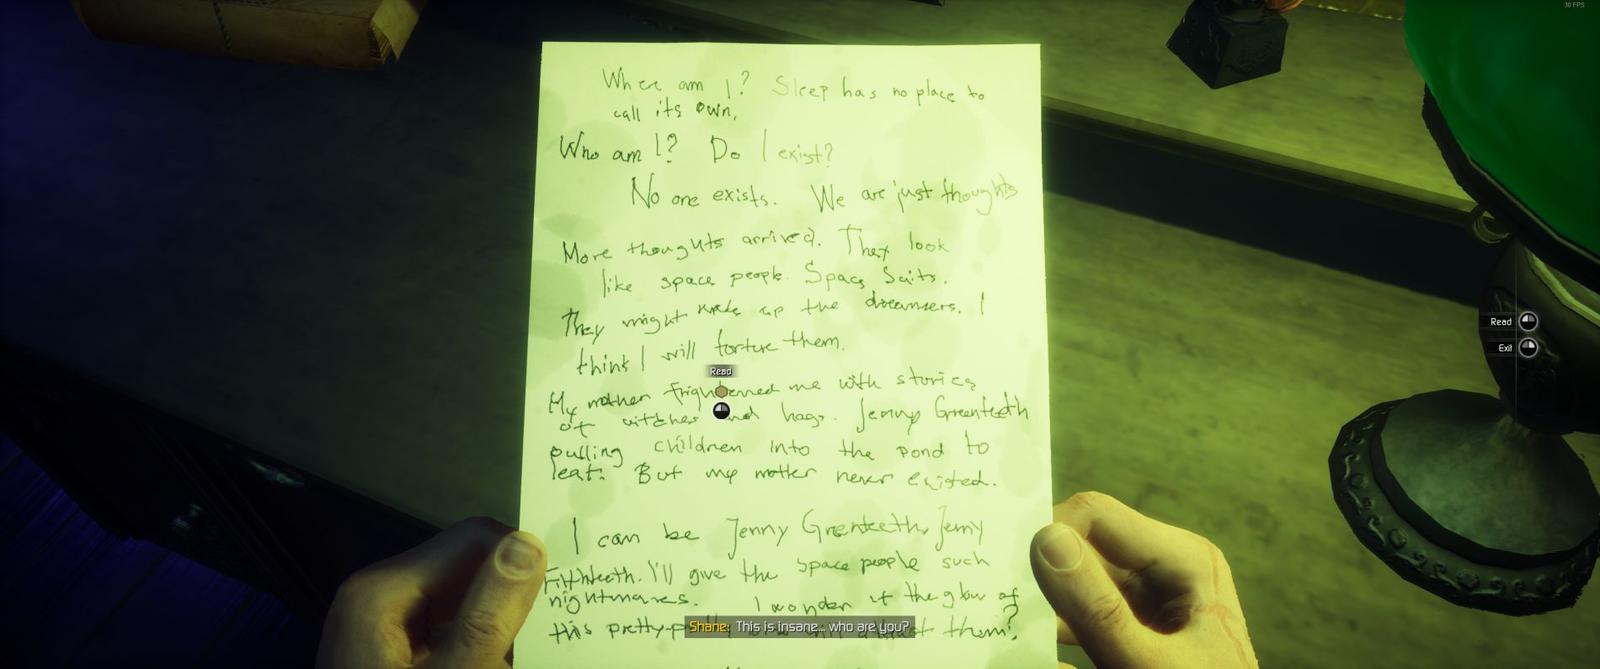 30 FPS
Where am I? Sleep has no place to
call its own.
Who am I? Do I exist?
No one exists. We are just thoughts
More thoughts arrived. They look
like space people. Space Suits.
They might make up the dreamers. I
think I will torture them.
Read
My mother frightened me with stories
of witches and hags. Jenny Greenteeth
pulling children into the pond to
eat. But my mother never existed.
I can be Jenny Greenteeth, Jenny
Filthteeth. I'll give the space people such
nightmares. I wonder if the glow of
this them?
Shane: This is insane... who are you?
Read
Exit